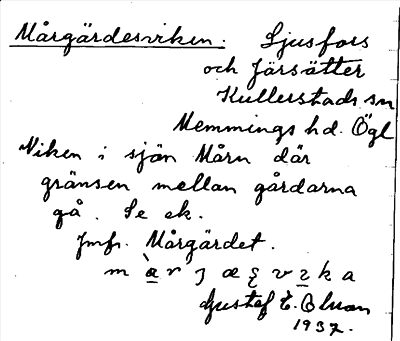 Mårgärdesviken. Ljusfors
och Järsätter
Kullerstads sn
Memmings hd. Ögl
Viken i sjön Mårn där
gränsen mellan gårdarna
gå. Se ek.
Jmfr. Mårgärdet.
Gustaf E.
1937.